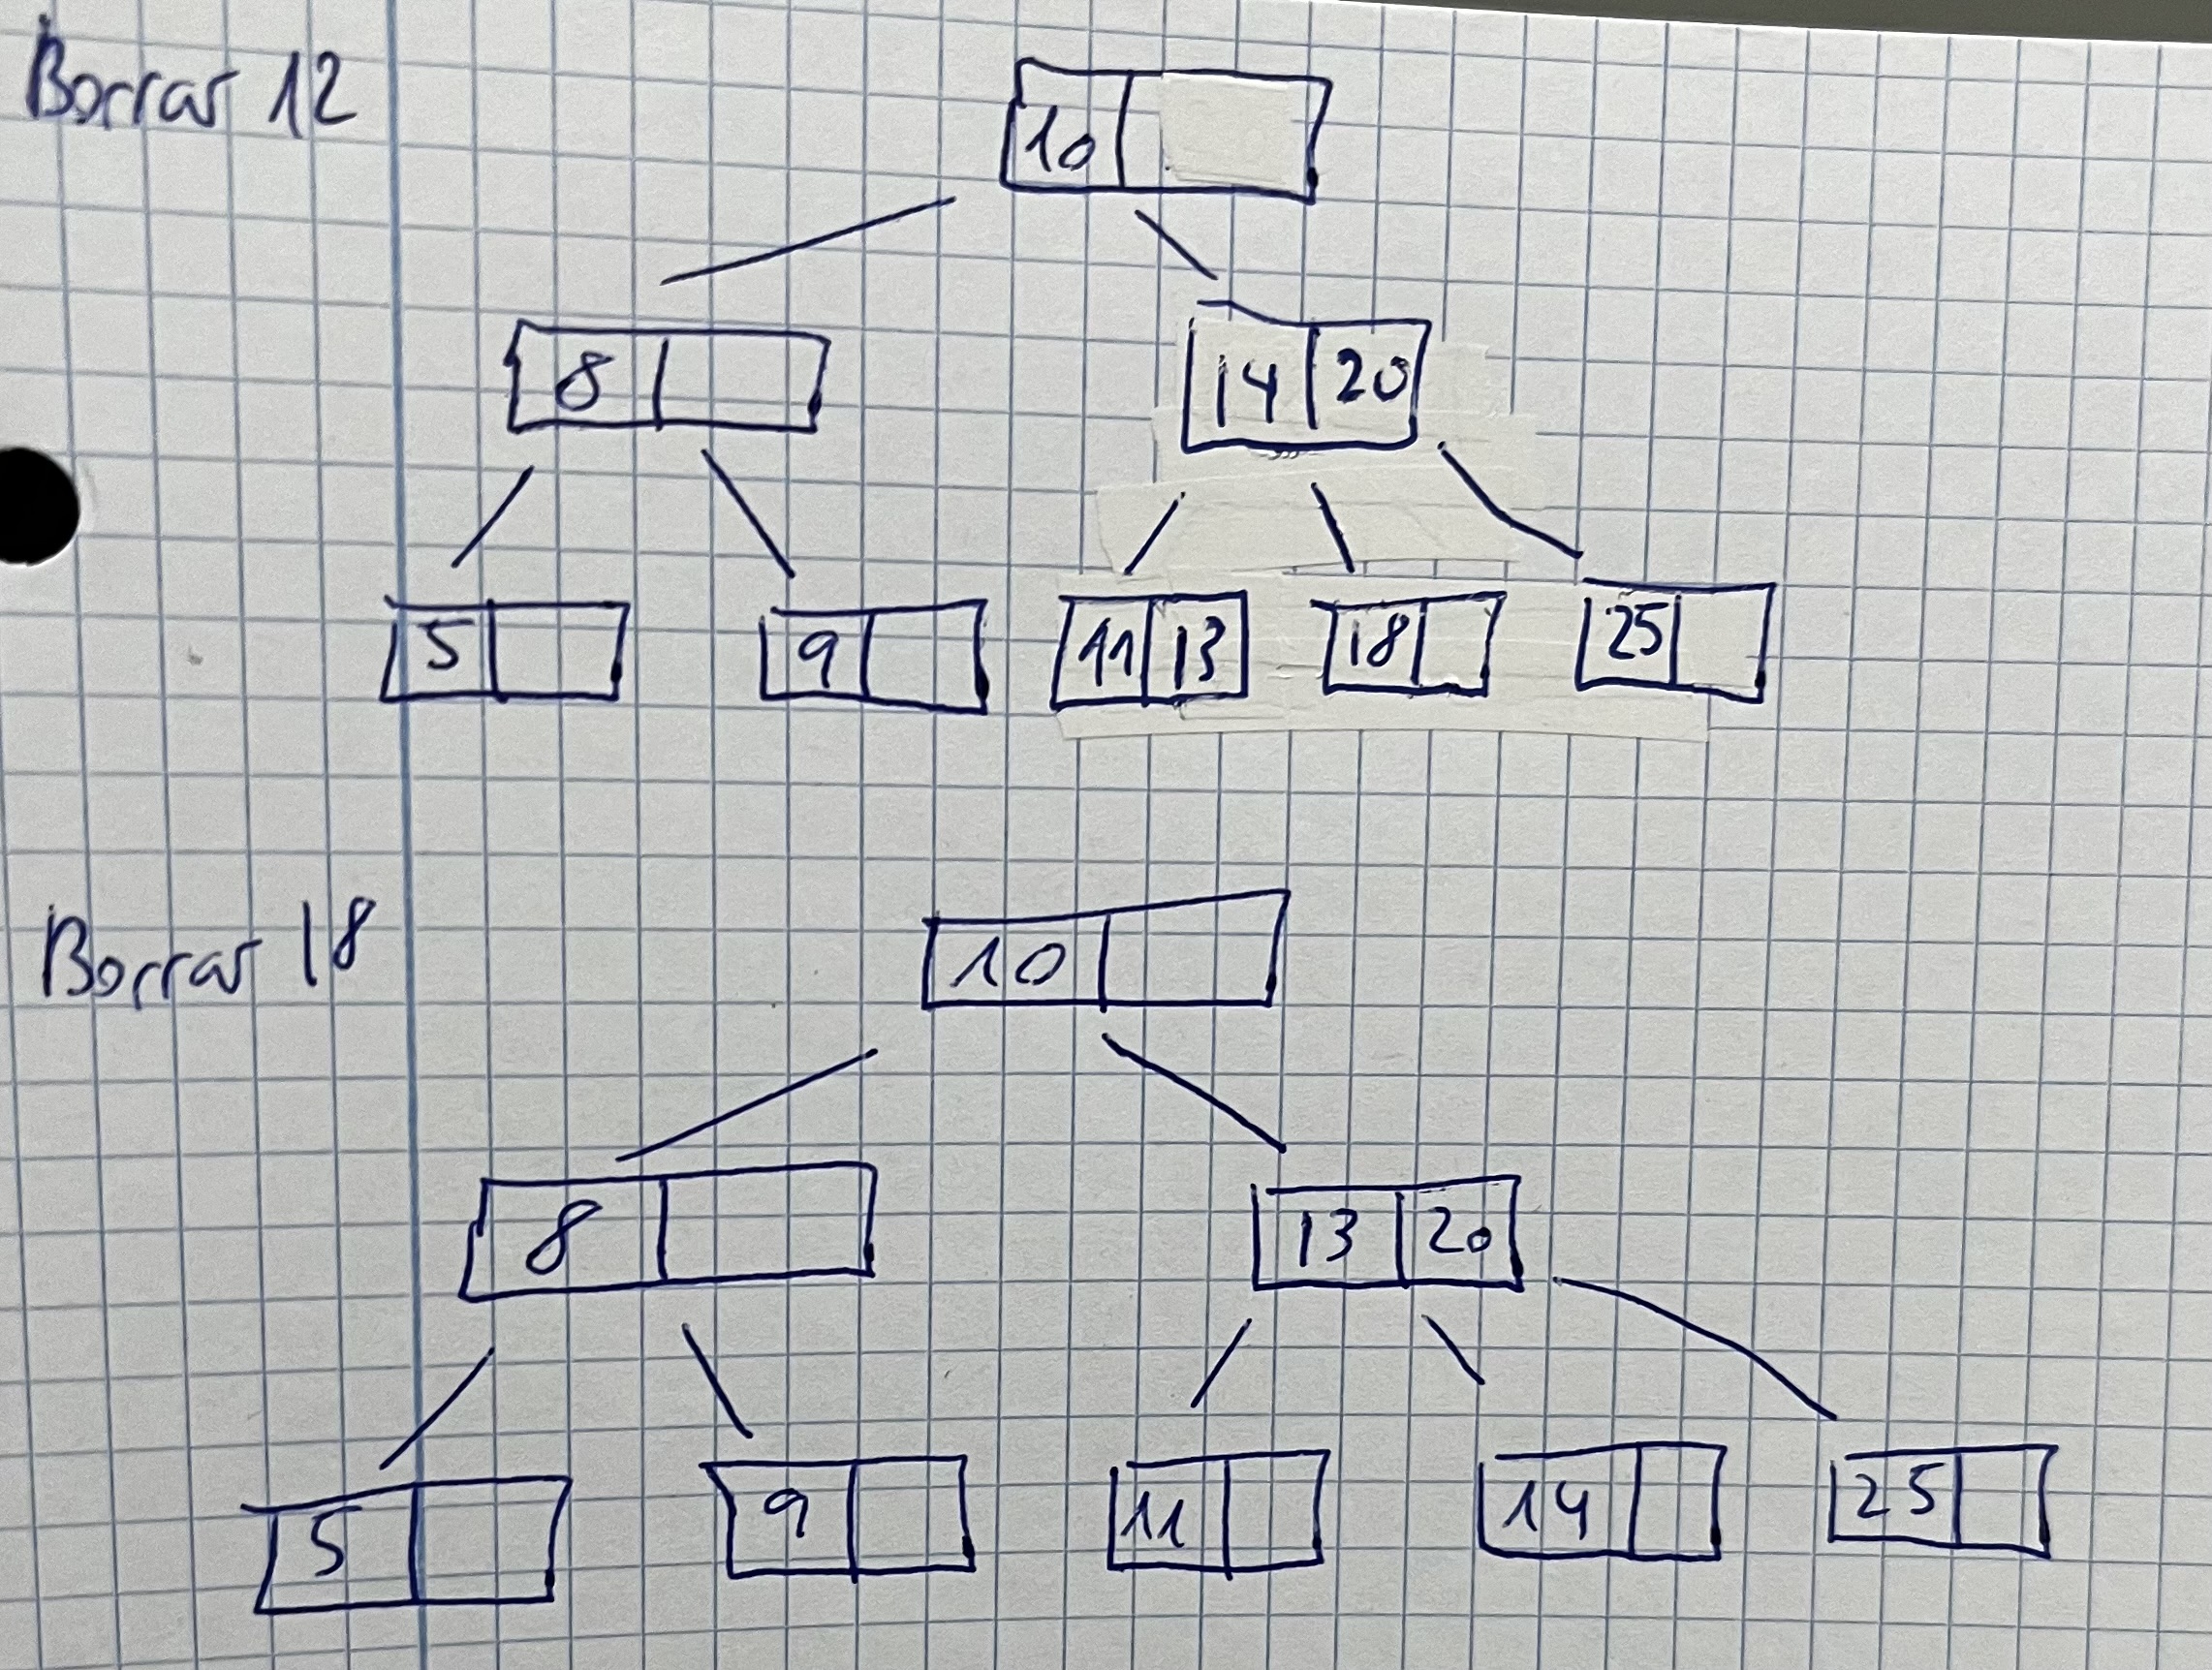 Borrar 12
10
8 14 20
5 9 11 13 18 25
Borrar 18
10
8 13 20
5 9 11 14 25